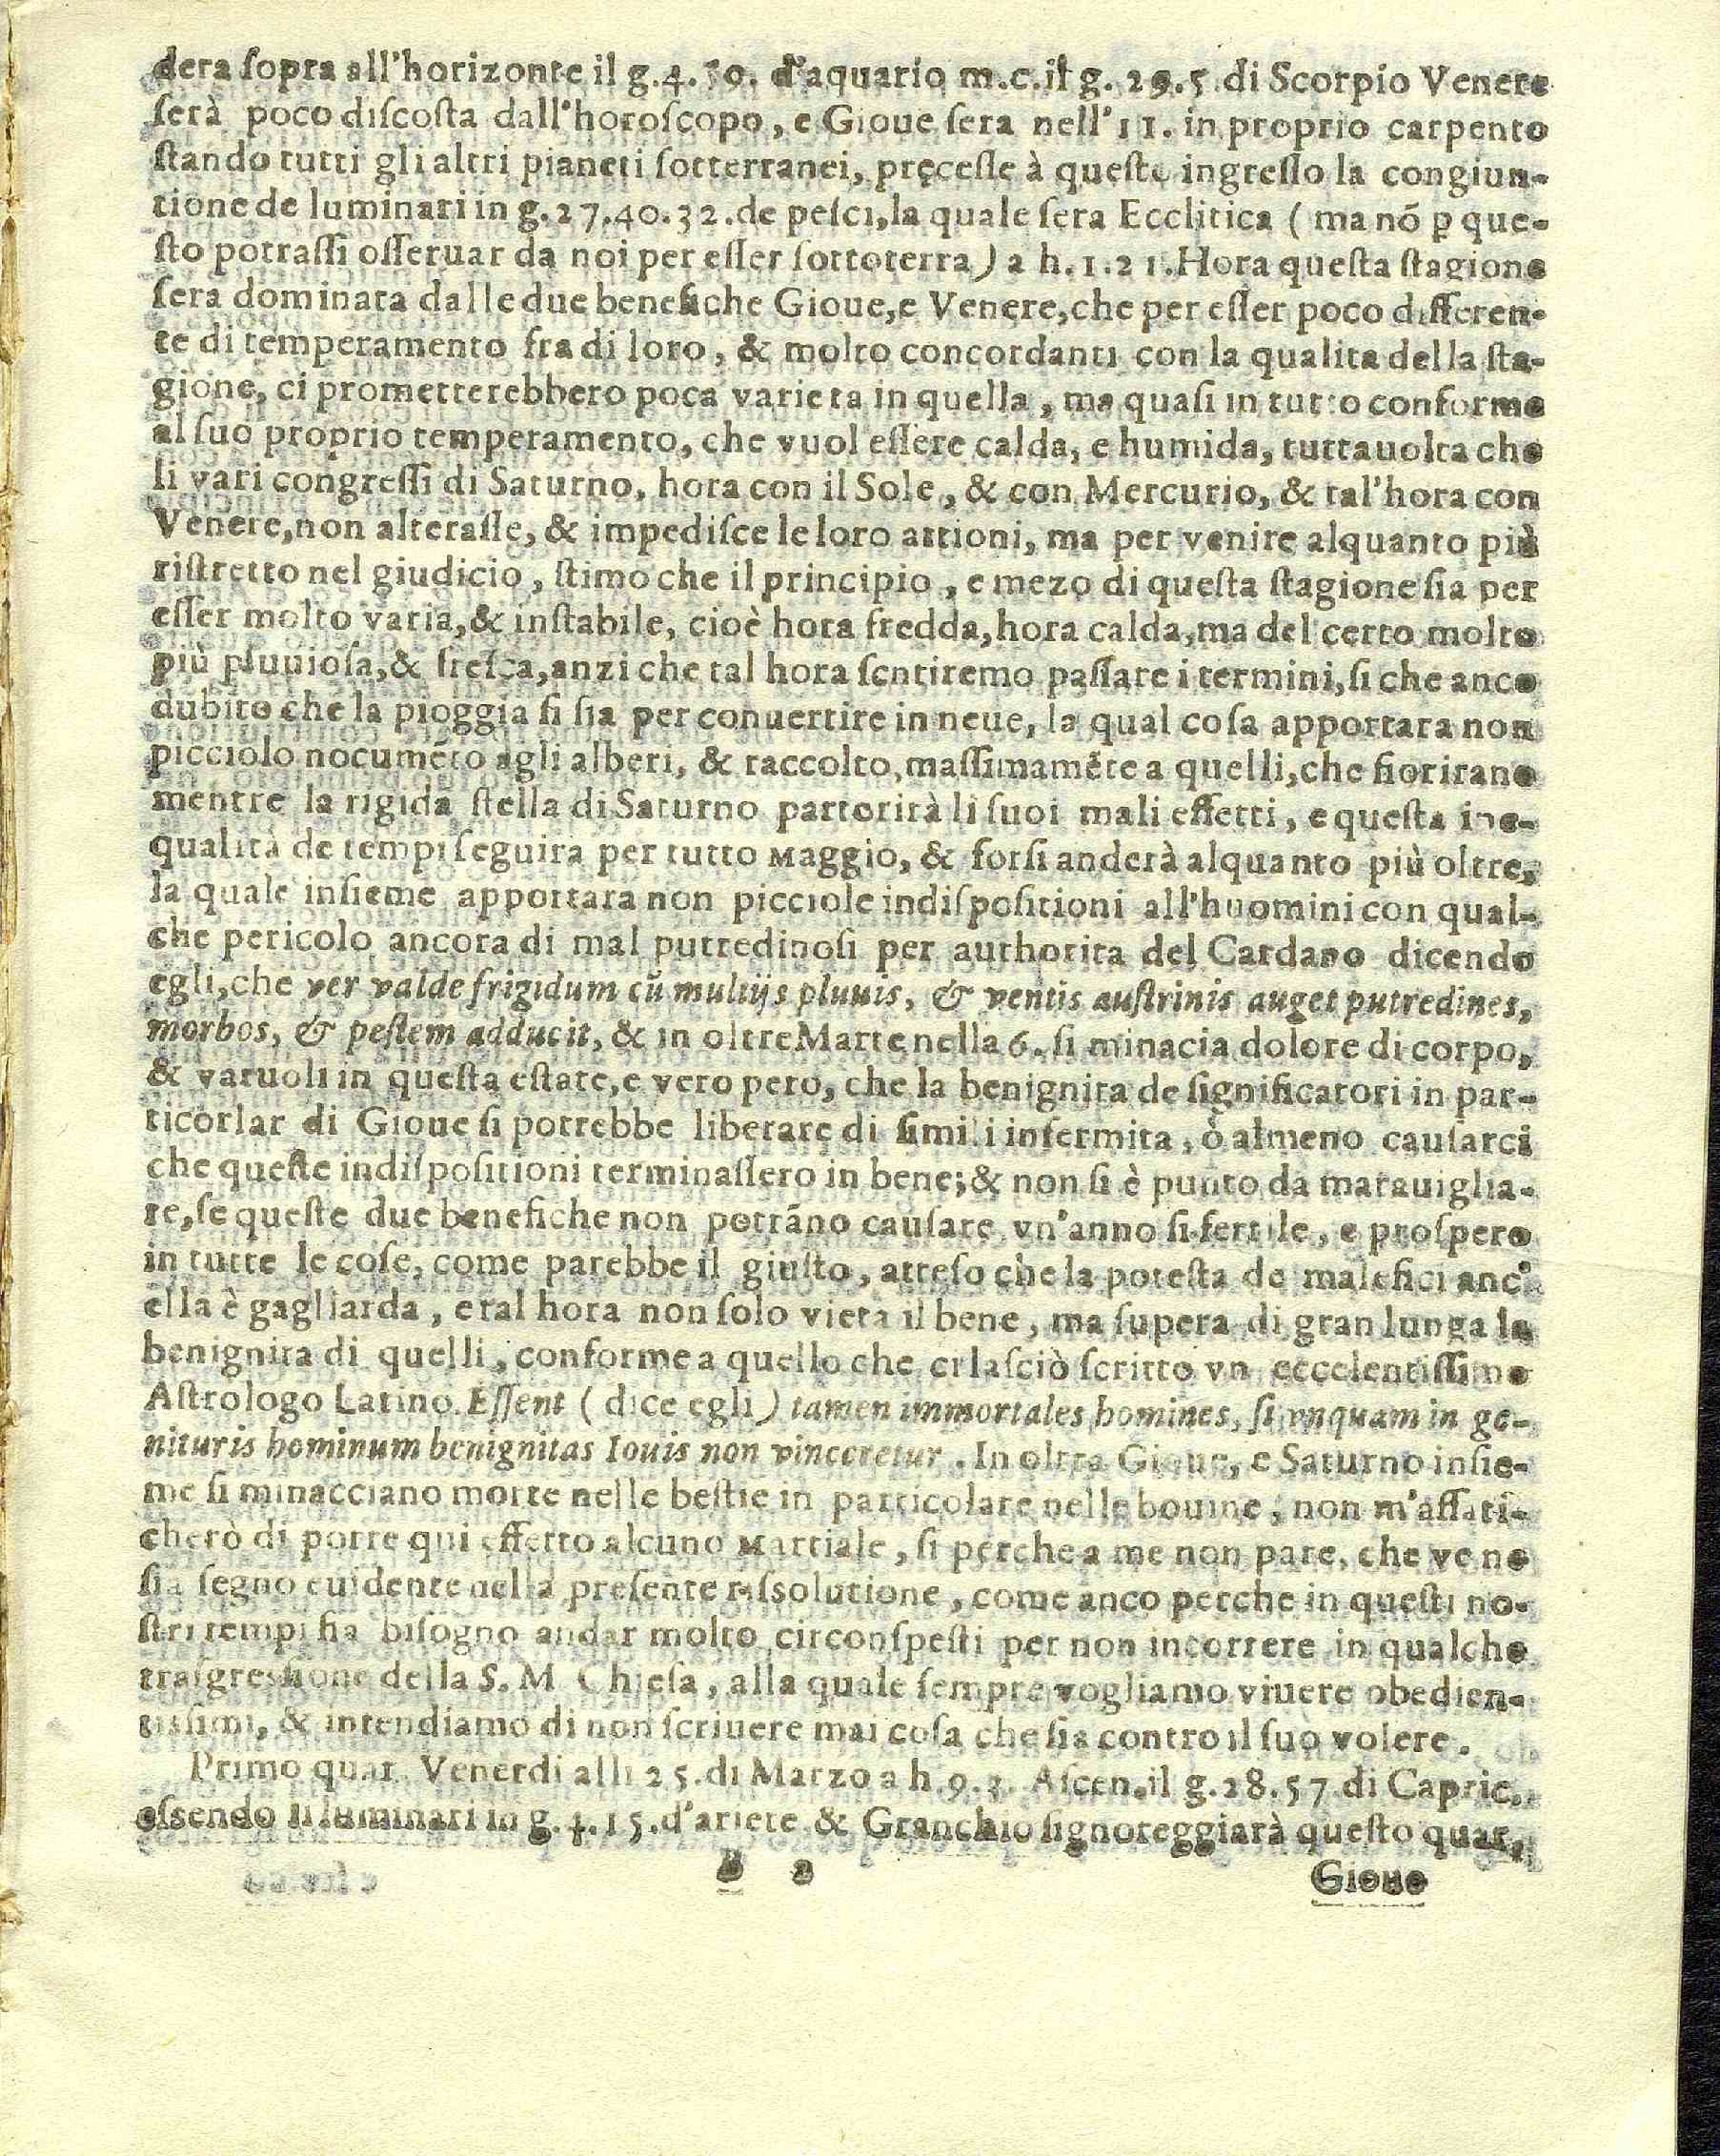 dera ſopra all'horizonte il g.4.50. d'aquario m.c.il g. 29.5 di Scorpio Venere
ſerà poco diſcoſta dall'horoſcopo, e Gioue ſera nell'11. in proprio carpento
ſtando tutti gli altri pianeti ſotterranei, pręceſſe à queſto ingreſſo la congiun-
tione de luminari in g.27.40.32.de peſci,la quale ſera Ecclitica ( ma nō ꝑ que-
ſto potraſſi oſſeruar da noi per eſſer ſottoterra) a h.1.21.Hora queſta ſtagione
ſera dominata dalle due benefiche Gioue,e Venere,che per eſſer poco differen-
te di temperamento fra di loro, & molto concordanti con la qualita della ſta-
gione, ci prometterebbero poca varieta in quella, ma quaſi in tutto conforme
al ſuo proprio temperamento, che vuol eſſere calda, e humida, tuttauolta che
li vari congreſſi di Saturno, hora con il Sole, & con Mercurio, & tal'hora con
Venere,non alteraſſe, & impediſce le loro attioni, ma per venire alquanto più
riſtretto nel giudicio, ſtimo che il principio, e mezo di queſta ſtagione ſia per
eſſer molto varia,& inſtabile, cioè hora fredda,hora calda,ma del certo molto
più pluuioſa,& freſca,anzi che tal hora ſentiremo paſſare i termini,ſi che anco
dubito che la pioggia ſi ſia per conuertire in neue, la qual coſa apportara non
picciolo nocumēto agli alberi, & raccolto,maſſimamēte a quelli,che fiorirano
mentre la rigida ſtella di Saturno partorirà li ſuoi mali effetti, e queſta ine-
qualità de tempi ſeguira per tutto Maggio, & forſi anderà alquanto più oltre,
la quale inſieme apportara non picciole indiſpoſitioni all'huomini con qual-
che pericolo ancora di mal putredinoſi per authorita del Cardano dicendo
egli,che ver valde frigidum cū multijs pluuis, & ventis auſtrinis auget putredines,
morbos, & peſtem adducit, & in oltre Marte nella 6. ſi minacia dolore di corpo,
& varuoli in queſta eſtate,e vero pero, che la benignita de ſignificatori in par-
ticorlar di Gioue ſi potrebbe liberare di ſimili infermita, ò almeno cauſarci
che queſte indiſpoſitioni terminaſſero in bene;& non ſi è punto da marauiglia-
re,ſe queſte due benefiche non potrāno cauſare vn'anno ſi fertile, e proſpero
in tutte le coſe, come parebbe il giuſto, atteſo che la poteſta de malefici anc'
ella è gagliarda, e tal hora non ſolo vieta il bene, ma ſupera di gran lunga la
benignita di quelli, conforme a quello che ci laſciò ſcritto vn eccelentiſſimo
Aſtrologo Latino. Eſſent ( dice egli) tamen immortales homines, ſi vnquam in ge-
nituris hominum benignitas Iouis non vinceretur. In oltra Gioue, e Saturno inſie-
me ſi minacciano morte nelle beſtie in particolare nelle bouine, non m'affati-
cherò di porre qui effetto alcuno Martiale, ſi perche a me non pare, che ve ne
ſia ſegno euidente nella preſente riſsolutione, come anco perche in queſti no-
ſtri tempi fia biſogno andar molto circonſpeſti per non incorrere in qualche
traſgreſſione della S. M Chieſa, alla quale ſempre vogliamo viuere obedien-
tiſſimi, & intendiamo di non ſcriuere mai coſa che ſia contro il ſuo volere.
Primo quar. Venerdi alli 25.di Marzo a h.9.3. Aſcen.il g.28.57 di Capric.
eſsendo li luminari in g.4.15.d'ariete & Granchio ſignoreggiarà queſto quar.
B 2
Gioue